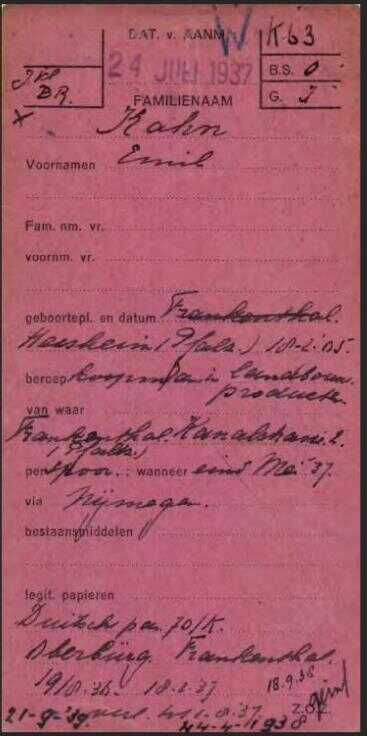 DAT. v. AANM. W K63
24 JULI 1937
B.S. O
B.R.
G. J
FAMILIENAAM
X Kahn
Voornamen Emil
Fam. nm. vr.
voornm. vr.
geboortepl. en datum Frankenthal.
Heisheim (Pfalz.) 18-2.05.
beroep koopman in landbouw.
producten
van waar
Frankenthal. Kanalstrasse 2.
(Pfalz.)
per spoor. : wanneer eind Mei '37.
via Nijmegen.
bestaansmiddelen
legit. papieren
Duitsche pas. 70/K.
Oberbürg. Frankenthal.
19/8.36. 18.2.37 18.9.38
21-9-'39. verl. 1.8.37. Z.O.Z.
44-4-1938